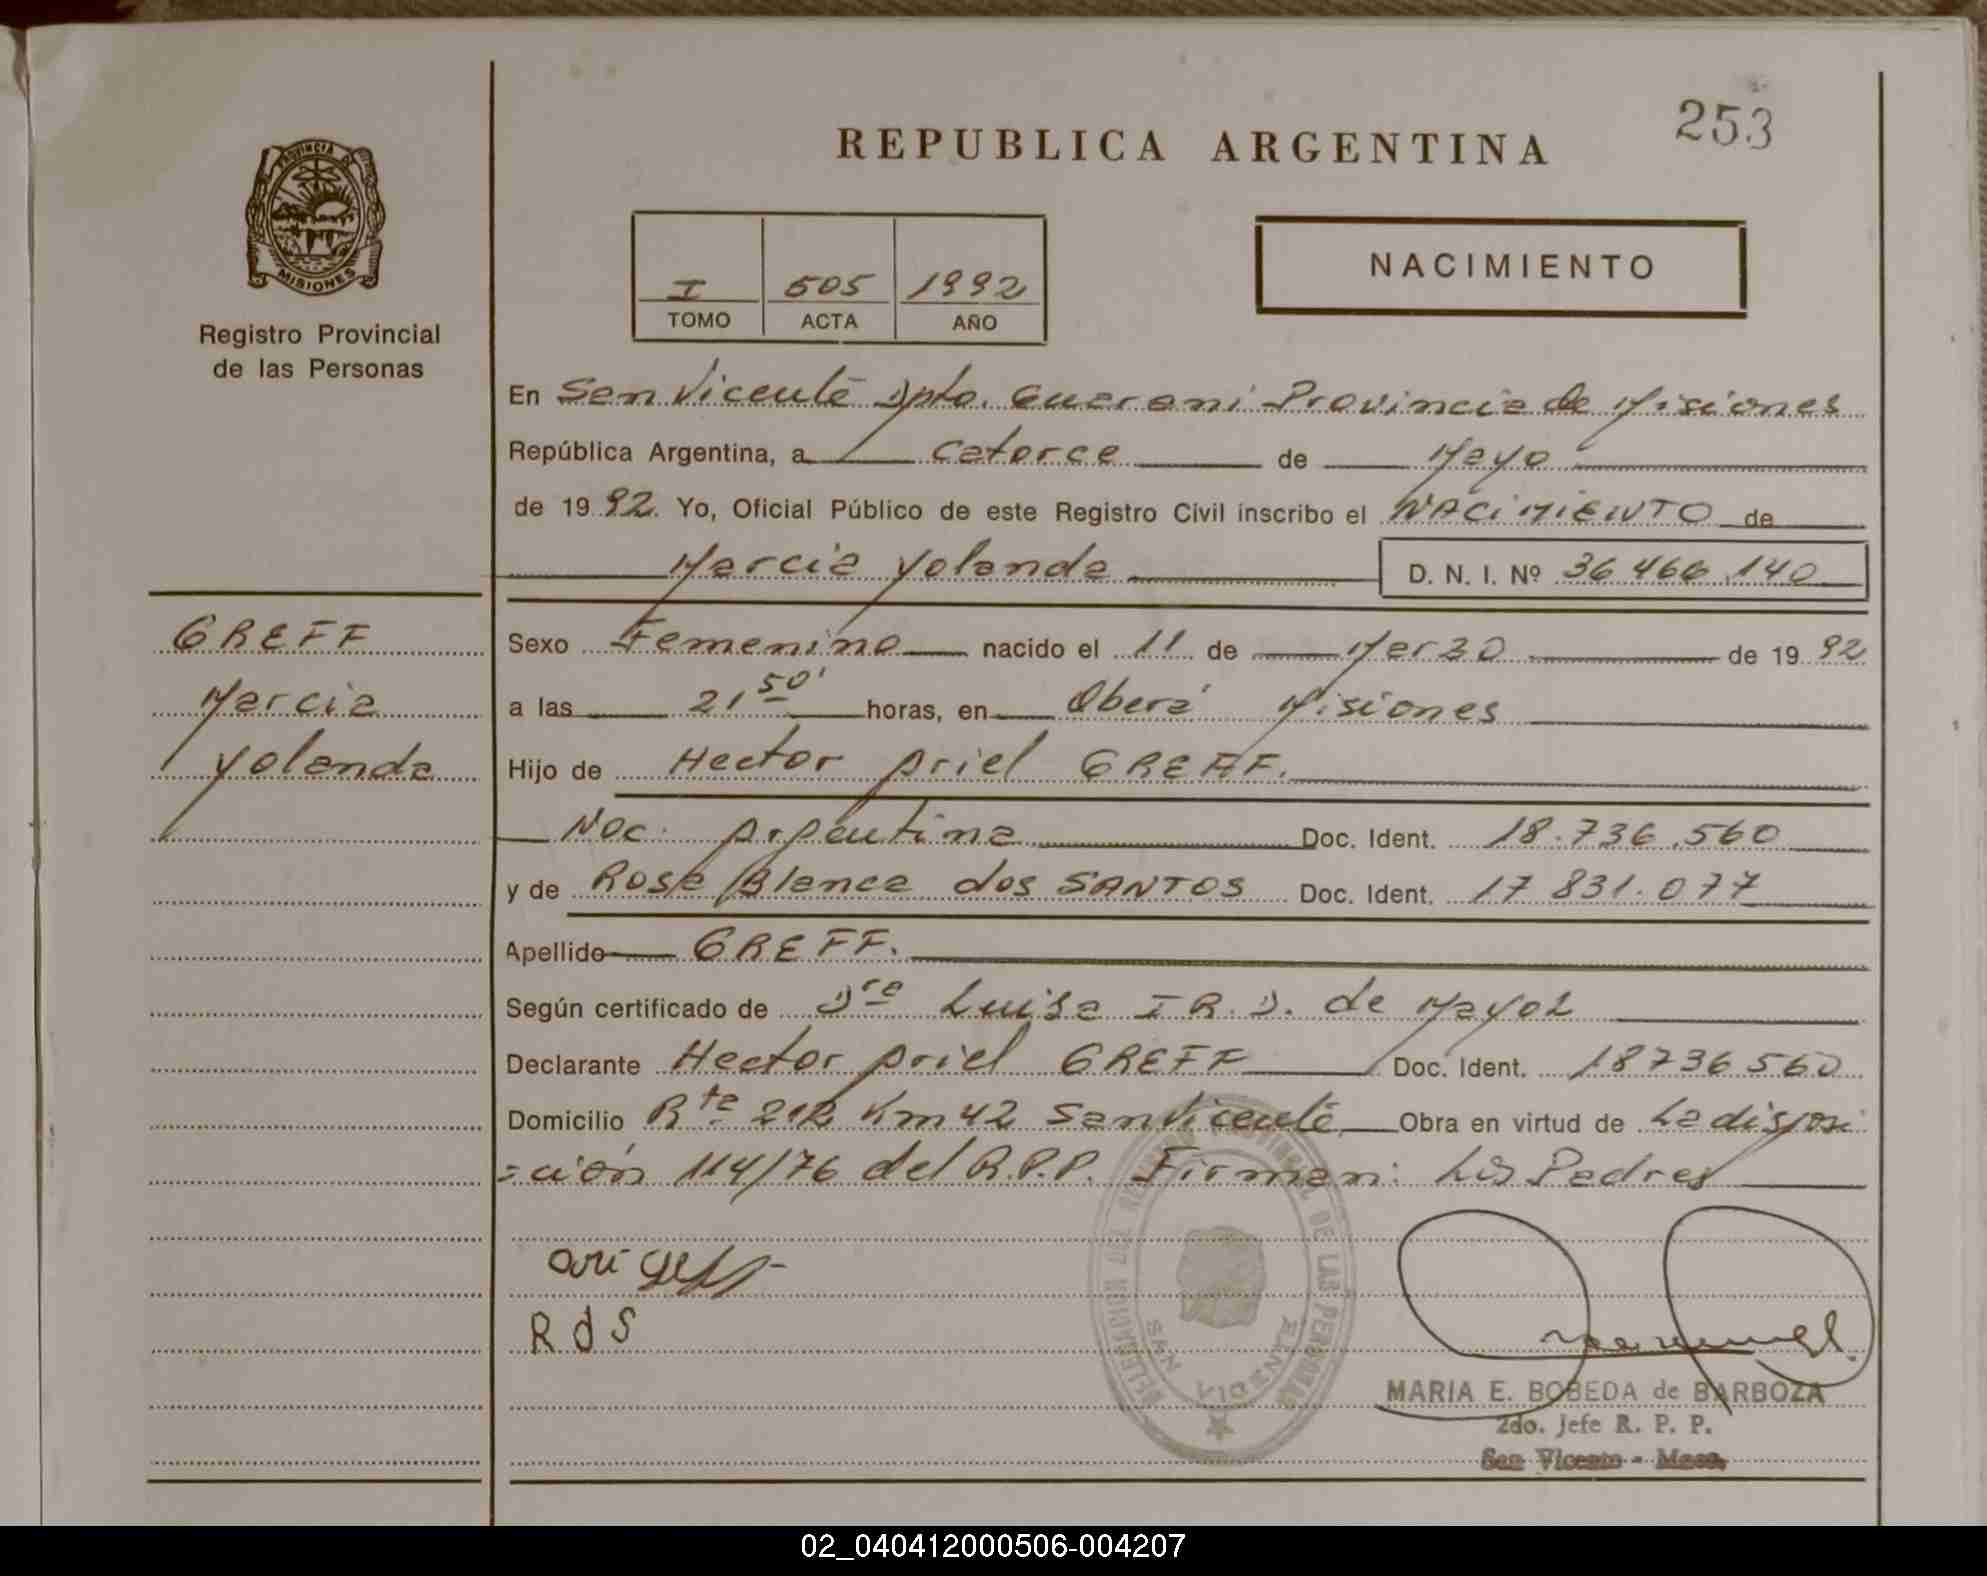 253
REPUBLICA ARGENTINA
PROVINCIA DE
MISIONES
Registro Provincial
de las Personas
I 505 1992
TOMO ACTA AÑO
NACIMIENTO
En San Vicente Dpto. Guarani Provincia de Misiones
República Argentina, a catorce de Mayo
de 1992. Yo, Oficial Público de este Registro Civil inscribo el NACIMIENTO de
Marcia Yolanda D. N. I. Nº 36 466.140
GREFF
Marcia
Yolanda
Sexo Femenino nacido el 11 de Marzo de 1992
a las 21 50' horas, en Oberá Misiones
Hijo de Hector Ariel GREFF.
Nac. Argentina Doc. Ident. 18.736.560
y de Rosa Blanca dos SANTOS Doc. Ident. 17 831.077
Apellido GREFF.
Según certificado de Dra Luisa I R. D. de Mayol
Declarante Hector Ariel GREFF Doc. Ident. 18736560
Domicilio Rta 212 Km 42 San Vicente Obra en virtud de La disposi
=ción 114/76 del R.P.P. Firman: Los Padres
R d S
DELEGACION DEL REGISTRO PROVINCIAL DE LAS PERSONAS
SAN VICENTE
MARIA E. BOBEDA de BARBOZA
2do. Jefe R. P. P.
San Vicente - Mnes.
02_040412000506-004207